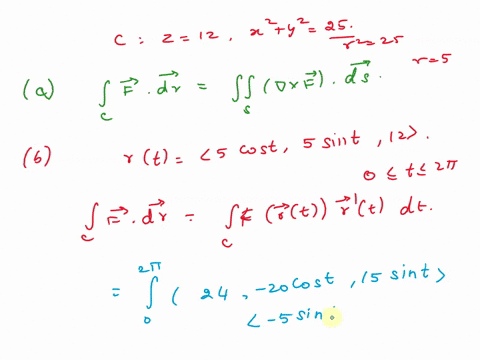 C : z = 12 , x² + y² = 25.
r² = 25
r = 5
(a) ∫_C F⃗ . d⃗r = ∬_S (∇ × F⃗) . d⃗s.
(b) r(t) = < 5 cost, 5 sint , 12 > .
0 ≤ t ≤ 2π
∫_C F⃗ . d⃗r = ∫_C F (r⃗(t)) r⃗'(t) dt.
= ∫_0^{2π} ( 24 , -20 cost , 15 sint >
< -5 sin